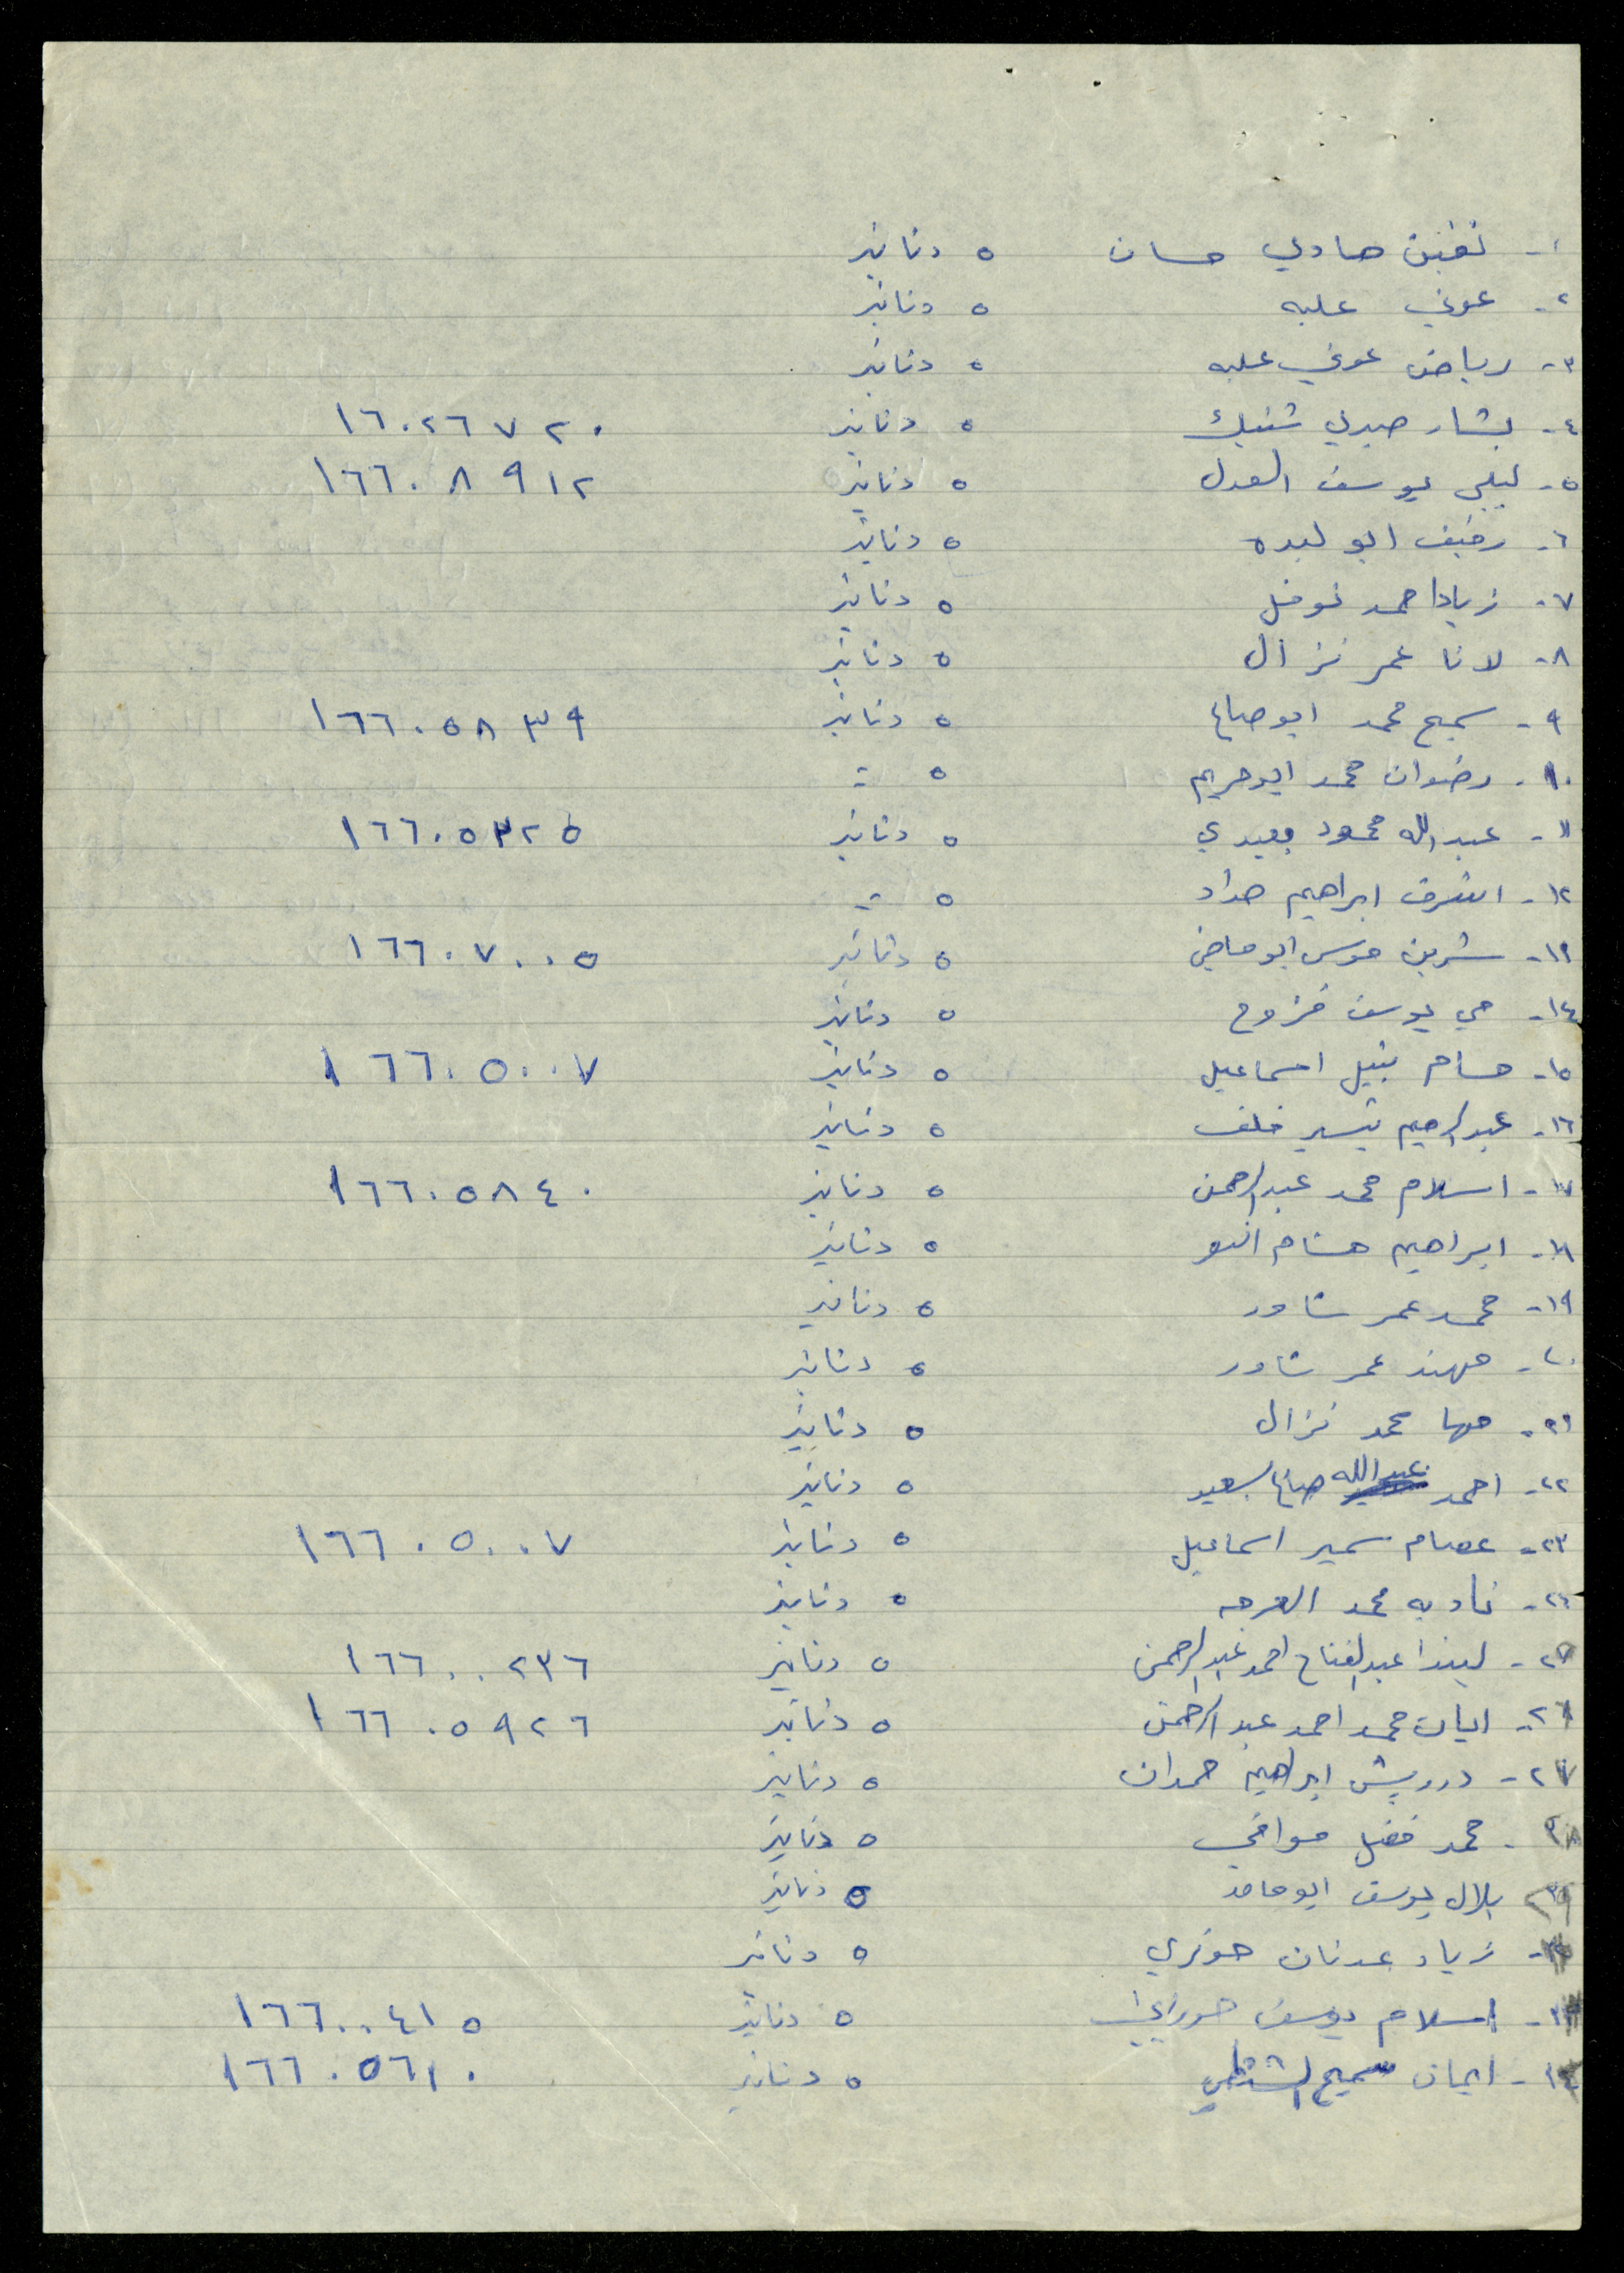 ١- تغنين هادي حسان ٥ دنانير
٢- عوني علبه ٥ دنانير
٣- رياض عوني علبه ٥ دنانير
٤- بشار صبري شنيك ٥ دنانير ١٦٠٢٦٧٢٠
٥- ليلى يوسف العدل ٥ دنانير ١٦٦٠٨٩١٢
٦- رفيف ابو لبده ٥ دنانير
٧- زياد احمد نوفل ٥ دنانير
٨- لانا عمر نزال ٥ دنانير
٩- سميح محمد ابو صالح ٥ دنانير ١٦٦٠٥٨٣٩
١٠- رضوان محمد ابو مريم ٥ =
١١- عبدالله محمود بعيدي ٥ دنانير ١٦٦٠٥٣٢٥
١٢- اشرف ابراهيم حداد ٥ =
١٣- شرين موسى ابو ماضي ٥ دنانير ١٦٦٠٧٠٠٥
١٤- مي يوسف فزوح ٥ دنانير
١٥- حسام نبيل اسماعيل ٥ دنانير ١٦٦٠٥٠٠٧
١٦- عبدالرحيم تيسير خلف ٥ دنانير
١٧- اسلام محمد عبدالرحمن ٥ دنانير ١٦٦٠٥٨٤٠
١٨- ابراهيم هشام ٥ دنانير
١٩- محمد عمر شاور ٥ دنانير
٢٠- مهند عمر شاور ٥ دنانير
٢١- مها محمد نزال ٥ دنانير
٢٢- احمد عبدالله صالح سعيد ٥ دنانير
٢٣- عصام سمير اسماعيل ٥ دنانير ١٦٦٠٥٠٠٧
٢٤- ناديه محمد الفرحه ٥ دنانير
٢٥- ليندا عبدالفتاح احمد عبدالرحمن ٥ دنانير ١٦٦٠٠٢٣٦
٢٦- ايات محمد احمد عبدالرحمن ٥ دنانير ١٦٦٠٥٩٢٦
٢٧- درويش ابراهيم حمدان ٥ دنانير
٢٨- محمد فضل موافي ٥ دنانير
٢٩ بلال يوسف ابو حامد ٥ دنانير
زياد عدنان حوزي ٥ دنانير
اسلام يوسف حوراني ٥ دنانير ١٦٦٠٠٤١٥
ايمان سميح الشنطي ٥ دنانير ١٦٦٠٥٦١٠